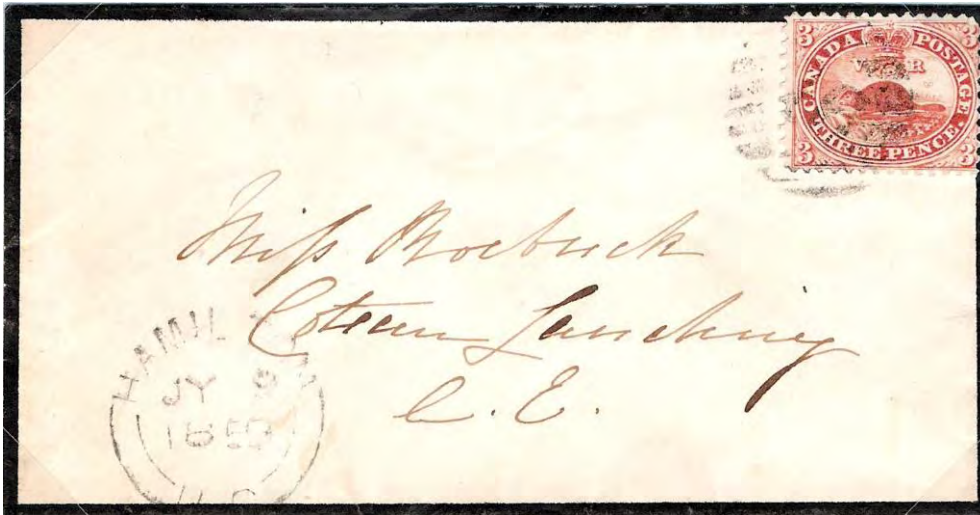 3 CANADA POSTAGE. 3
V R
3 THREE PENCE. 3
Miss Roebuck
Coteau Landing
C. E.
HAMILTON
JY 9
1859
U.C